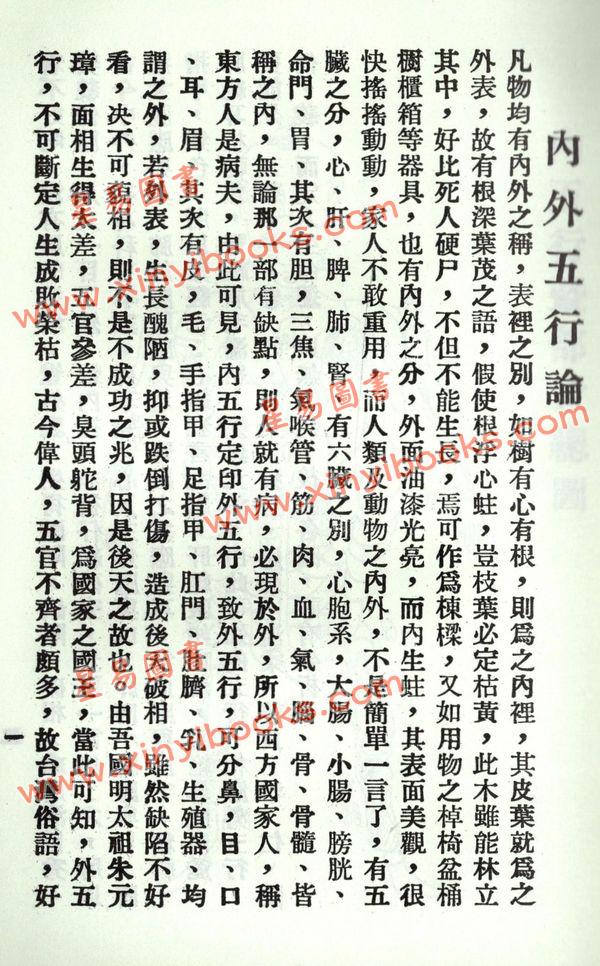 內外五行論
凡物均有內外之稱，表裡之別，如樹有心有根，則為之內裡，其皮葉就為之
外表，故有根深葉茂之語，假使根浮心蛀，豈枝葉必定枯黃，此木雖能林立
其中，好比死人硬尸，不但不能生長，焉可作為棟樑，又如用物之棹椅盆桶
櫥櫃箱等器具，也有內外之分，外面油漆光亮，而內生蛀，其表面美觀，很
快搖搖動動，家人不敢重用，而人類及動物之內外，不是簡單一言了，有五
臟之分，心、肝、脾、肺、腎、有六臟之別，心胞系，大腸、小腸、膀胱、
命門、胃、其次有胆，三焦、氣喉管、筋、肉、血、氣、腦、骨、骨髓、皆
稱之內，無論那一部有缺點，則人就有病，必現於外，所以西方國家人，稱
東方人是病夫，由此可見，內五行定印外五行，致外五行，可分鼻，目、口
、耳、眉、其次有皮，毛、手指甲、足指甲、肛門、肚臍、乳、生殖器、均
謂之外，若外表，生長醜陋，抑或跌倒打傷，造成後天破相，雖然缺陷不好
看，決不可貌相，則不是不成功之兆，因是後天之故也。由吾國明太祖朱元
璋，面相生得太差，五官參差，臭頭舵背，為國家之國主，當此可知，外五
行，不可斷定人生成敗榮枯，古今偉人，五官不齊者頗多，故台灣俗語，好
一
星易圖書
www.xinyibooks.com
星易圖書
www.xinyibooks.com
星易圖書
www.xinyibooks.com